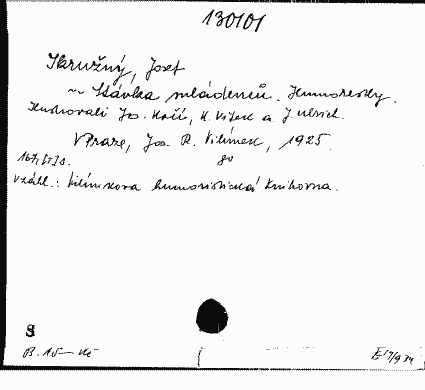 130101
Skružný, Josef
~ Stávka mládenců. Humoresky.
Ilustrovali Jos. Kočí, K. Vítek a J. Ulrich.
V Praze, Jos. R. Vilímek, 1925.
8°
V záhl.: Vilímkova humoristická knihovna.
S
B. 15— Kč